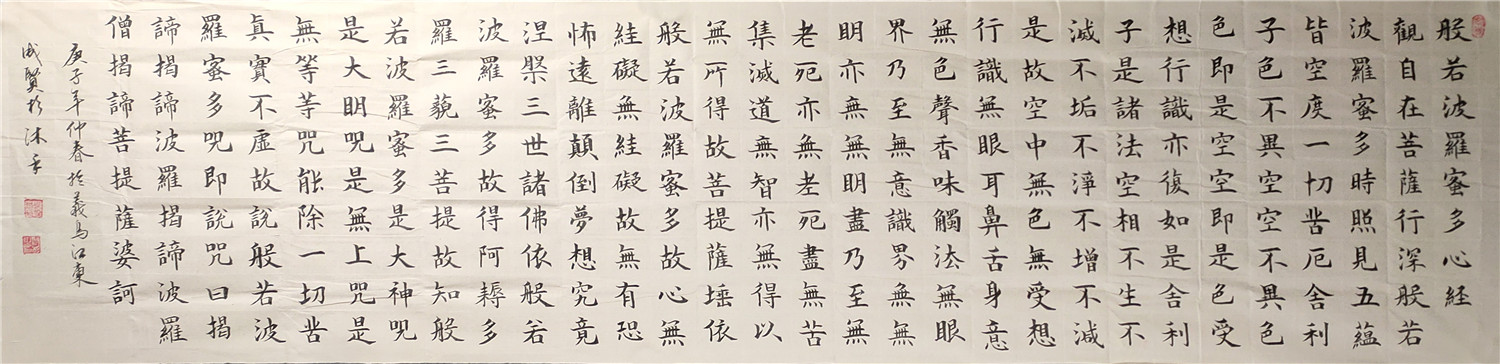 般若波羅蜜多心経
觀自在菩薩行深般若
波羅蜜多時照見五蘊
皆空度一切苦厄舍利
子色不異空空不異色
色即是空空即是色受
想行識亦復如是舍利
子是諸法空相不生不
滅不垢不淨不增不減
是故空中無色無受想
行識無眼耳鼻舌身意
無色聲香味觸法無眼
界乃至無意識界無無
明亦無無明盡乃至無
老死亦無老死盡無苦
集滅道無智亦無得以
無所得故菩提薩埵依
般若波羅蜜多故心無
絓礙無絓礙故無有恐
怖遠離顛倒夢想究竟
涅槃三世諸佛依般若
波羅蜜多故得阿耨多
羅三藐三菩提故知般
若波羅蜜多是大神咒
是大明咒是無上咒是
無等等咒能除一切苦
真實不虛故說般若波
羅蜜多咒即說咒曰揭
諦揭諦波羅揭諦波羅
僧揭諦菩提薩婆訶
庚子年仲春於義烏江東
成賢於沐手